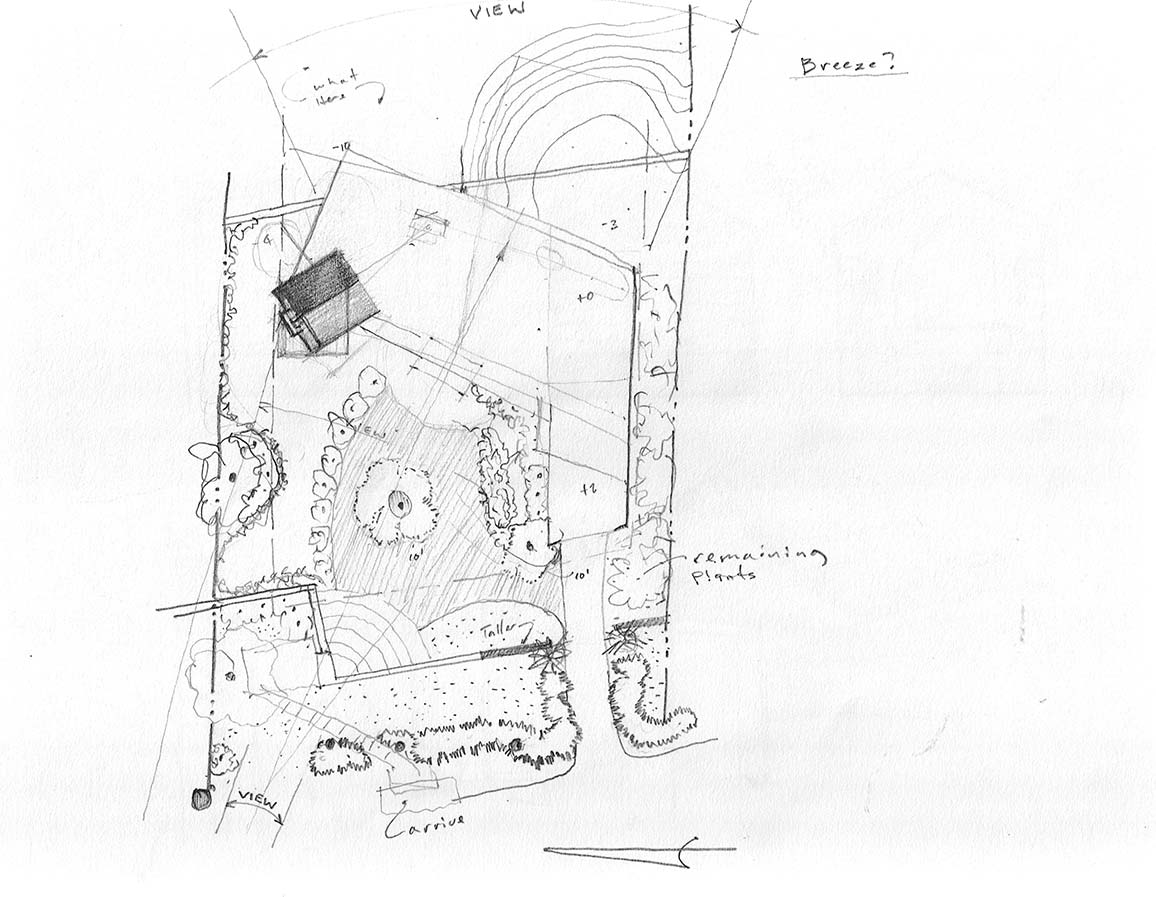 VIEW
Breeze?
"what
Here
-10
-3
+0
VIEW
+2
10'
10'
remaining
Plants
Taller
VIEW
arrive